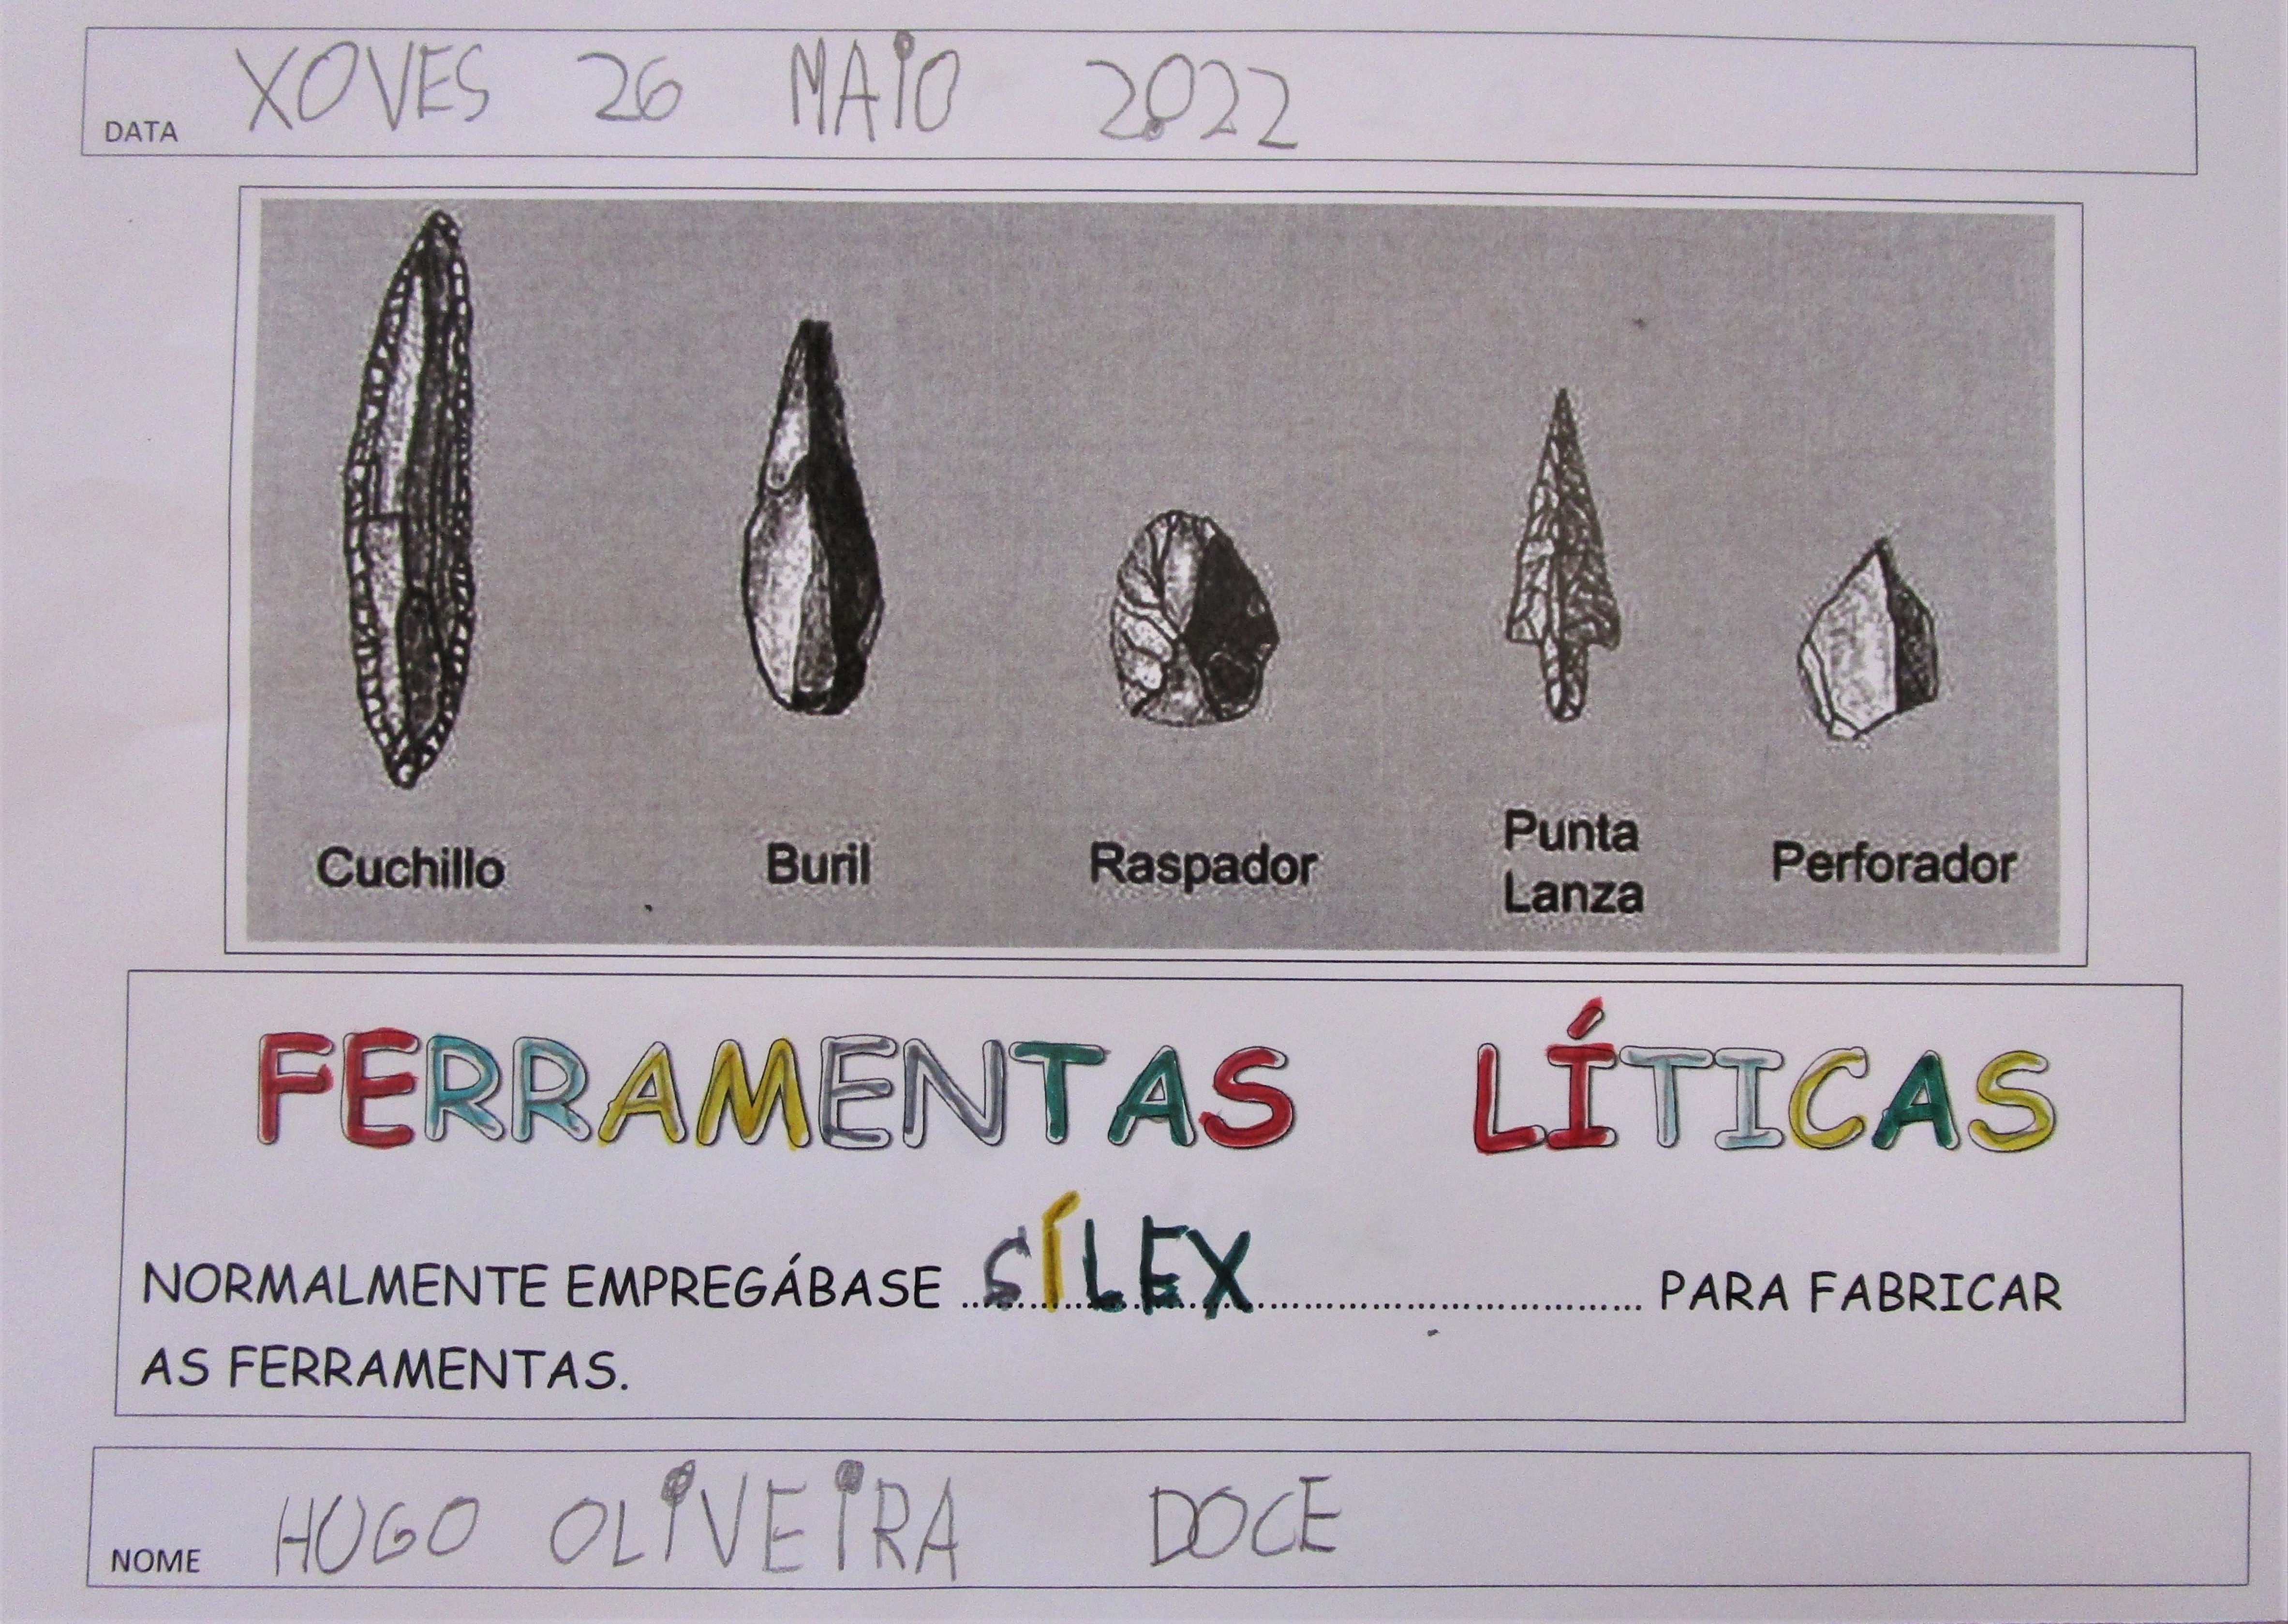 DATA XOVES 26 MAIO 2022
Cuchillo Buril Raspador Punta Lanza Perforador
FERRAMENTAS LÍTICAS
NORMALMENTE EMPREGÁBASE SÍLEX PARA FABRICAR
AS FERRAMENTAS.
NOME HUGO OLIVEIRA DOCE